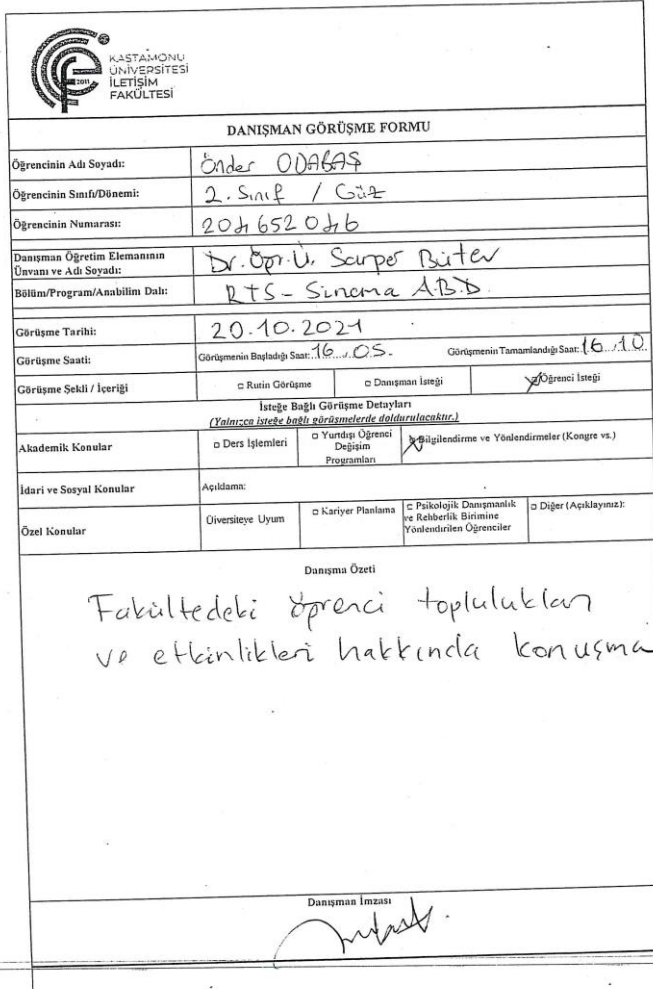 KASTAMONU
ÜNİVERSİTESİ
İLETİŞİM
FAKÜLTESİ
2011
DANIŞMAN GÖRÜŞME FORMU
Öğrencinin Adı Soyadı: Önder ODABAŞ
Öğrencinin Sınıfı/Dönemi: 2. Sınıf / Güz
Öğrencinin Numarası:
Danışman Öğretim Elemanının
Ünvanı ve Adı Soyadı: Dr. Öğr. Ü. Sarper Bütev
Bölüm/Program/Anabilim Dalı: RTS - Sinema A.B.D.
Görüşme Tarihi: 20.10.2021
Görüşme Saati: Görüşmenin Başladığı Saat: 16...05. Görüşmenin Tamamlandığı Saat: 16...10
Görüşme Şekli / İçeriği □ Rutin Görüşme □ Danışman İsteği Öğrenci İsteği
İsteğe Bağlı Görüşme Detayları
(Yalnızca isteğe bağlı görüşmelerde doldurulacaktır.)
Akademik Konular □ Ders İşlemleri □ Yurtdışı Öğrenci Değişim Programları Bilgilendirme ve Yönlendirmeler (Kongre vs.)
İdari ve Sosyal Konular Açıklama:
Özel Konular Üiversiteye Uyum □ Kariyer Planlama □ Psikolojik Danışmanlık ve Rehberlik Birimine Yönlendirilen Öğrenciler □ Diğer (Açıklayınız):
Danışma Özeti
Fakültedeki öğrenci toplulukları
ve etkinlikleri hakkında konuşma
Danışman İmzası